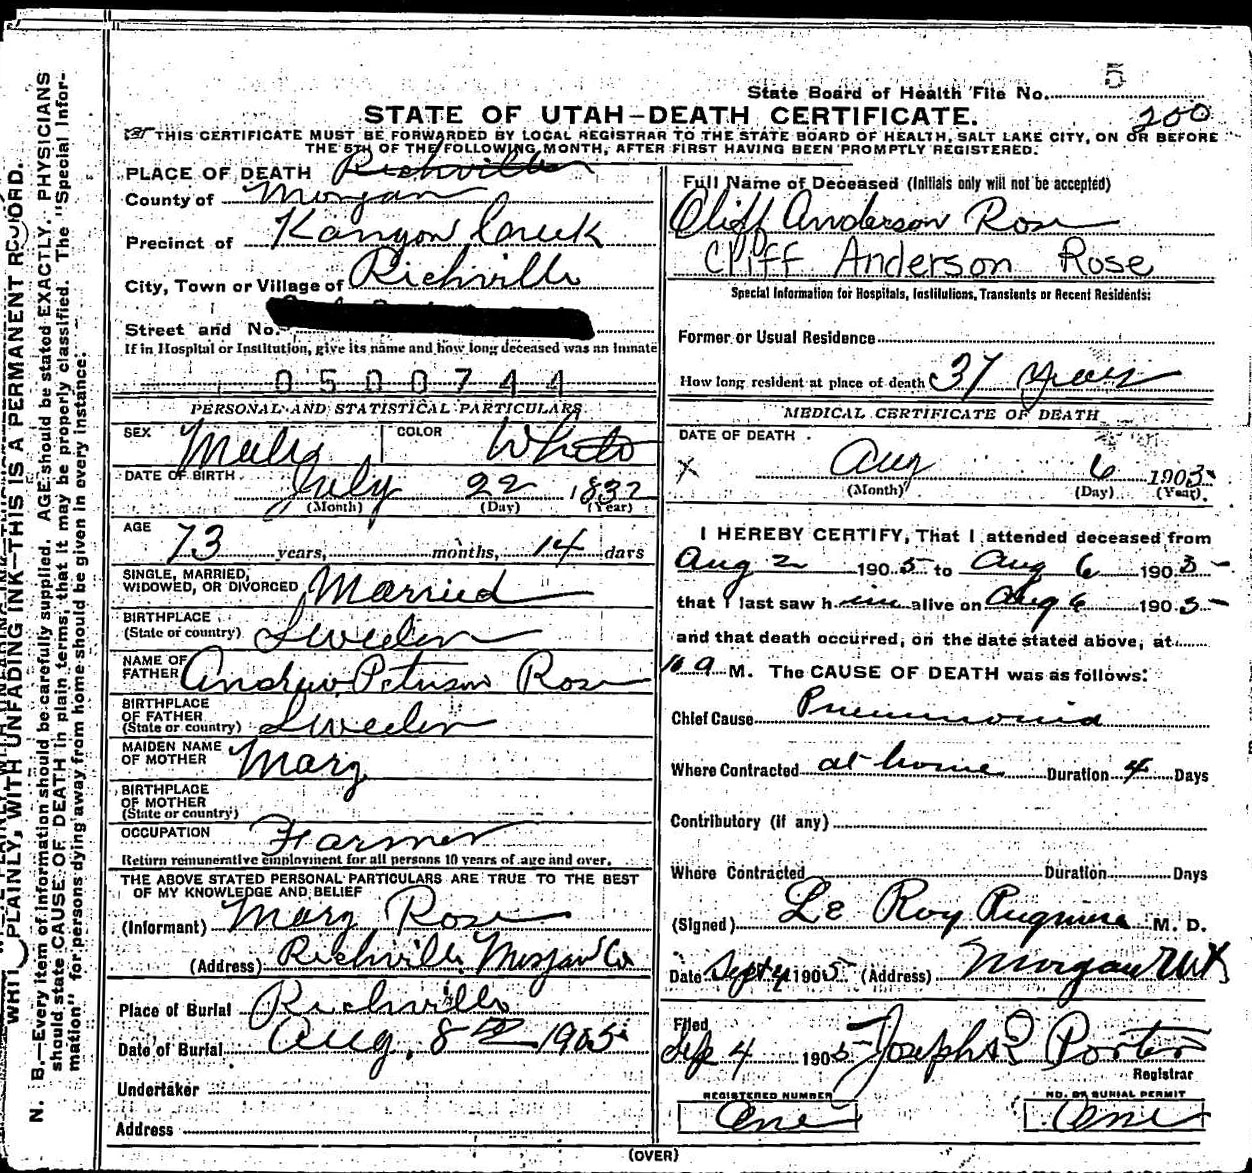 5
State Board of Health File No.
200
STATE OF UTAH—DEATH CERTIFICATE.
THIS CERTIFICATE MUST BE FORWARDED BY LOCAL REGISTRAR TO THE STATE BOARD OF HEALTH, SALT LAKE CITY, ON OR BEFORE
THE 5TH OF THE FOLLOWING MONTH, AFTER FIRST HAVING BEEN PROMPTLY REGISTERED.
PLACE OF DEATH Richville
County of Morgan
Precinct of Kanyon Creek
City, Town or Village of Richville
Street and No.
If in Hospital or Institution, give its name and how long deceased was an inmate
0500744
PERSONAL AND STATISTICAL PARTICULARS
SEX Male COLOR White
DATE OF BIRTH July 22 1832
(Month) (Day) (Year)
AGE 73 years, months, 14 days
SINGLE, MARRIED,
WIDOWED, OR DIVORCED Married
BIRTHPLACE
(State or country) Sweden
NAME OF
FATHER Andrew Peterson Rose
BIRTHPLACE
OF FATHER
(State or country) Sweden
MAIDEN NAME
OF MOTHER Mary
BIRTHPLACE
OF MOTHER
(State or country)
OCCUPATION Farmer
Return remunerative employment for all persons 10 years of age and over.
THE ABOVE STATED PERSONAL PARTICULARS ARE TRUE TO THE BEST
OF MY KNOWLEDGE AND BELIEF
(Informant) Mary Rose
(Address) Richville Morgan Co
Place of Burial Richville
Date of Burial Aug. 8 1905
Undertaker
Address
Full Name of Deceased (Initials only will not be accepted)
Cliff Anderson Rose
Cliff Anderson Rose
Special Information for Hospitals, Institutions, Transients or Recent Residents:
Former or Usual Residence
How long resident at place of death 37 years
MEDICAL CERTIFICATE OF DEATH
DATE OF DEATH
X Aug 6 1905
(Month) (Day) (Year).
I HEREBY CERTIFY, That I attended deceased from
Aug 2 1905 to Aug 6 1905
that I last saw him alive on Aug 6 1905
and that death occurred, on the date stated above, at
10 a M. The CAUSE OF DEATH was as follows:
Chief Cause Pneumonia
Where Contracted at home Duration 4 Days
Contributory (if any)
Where Contracted Duration Days
(Signed) Le Roy M. D.
Date Sept 4 1905 (Address) Morgan Utt
Filed
Sep 4 1905 Joseph Porter
Registrar
REGISTERED NUMBER
One
NO. OF BURIAL PERMIT
One
(OVER)
PLAINLY, WITH UNFADING INK—THIS IS A PERMANENT RECORD.
N. B.—Every item of information should be carefully supplied. AGE should be stated EXACTLY. PHYSICIANS
should state CAUSE OF DEATH in plain terms, that it may be properly classified. The "Special Infor-
mation" for persons dying away from home should be given in every instance.